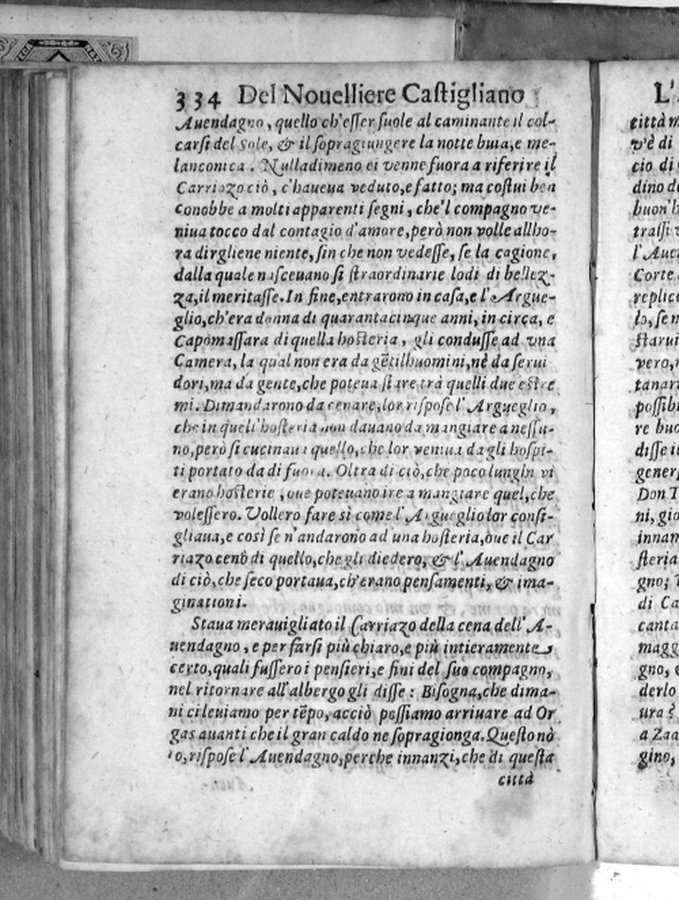 334 Del Nouelliere Castigliano
Auendagno, quello ch'esser suole al caminante il col-
carsi del Sole, & il sopragiungere la notte buia, e me-
lanconica. Nulladimeno ei venne fuora a riferire il
Carriazo ciò, c'haueua veduto, e fatto; ma costui ben
conobbe a molti apparenti segni, che'l compagno ve-
niua tocco dal contagio d'amore, però non volle allho-
ra dirgliene niente, sin che non vedesse, se la cagione,
dalla quale nasceuano sì straordinarie lodi di bellez-
za, il meritasse. In fine, entrarono in casa, e l'Argue-
glio, ch'era donna di quarantacinque anni, in circa, e
Capomassara di quella hosteria, gli condusse ad vna
Camera, la qual non era da gētilhuomini, nè da serui
dori, ma da gente, che poteua stare trà quelli due estre
mi. Dimandarono da cenare, lor rispose l'Argueglio,
che in quell'hosteria non dauano da mangiare a nessu-
no, però si cucinaua quello, che lor veniua dagli hospi-
ti portato da di fuora. Oltra di ciò, che poco lunghi vi
erano hosterie, oue poteuano ire a mangiare quel, che
volessero. Vollero fare sì come l'Argueglio lor consi-
gliaua, e così se n'andarono ad una hosteria, oue il Car
riazo cenò di quello, che gli diedero, & l'Auendagno
di ciò, che seco portaua, ch'erano pensamenti, & ima-
ginationi.
Staua merauigliato il Carriazo della cena dell'A-
uendagno, e per farsi più chiaro, e più intieramente
certo, quali fussero i pensieri, e fini del suo compagno,
nel ritornare all'albergo gli disse: Bisogna, che dima-
ni ci leuiamo per tēpo, acciò possiamo arriuare ad Or
gas auanti che il gran caldo ne sopragionga. Questo nò
o, rispose l'Auendagno, perche innanzi, che di questa
città
L'
città m
v'è di
cio di
dino d
buon'h
trassi
l'Auen
Corte
replic
lo, se n
starui
vero,
tanar
possib
re buo
disse i
gener
Don T
ni, gio
innam
steria
gno;
di Ca
canta
magg
gno, e
derlo
ura?
a Zaa
gino,